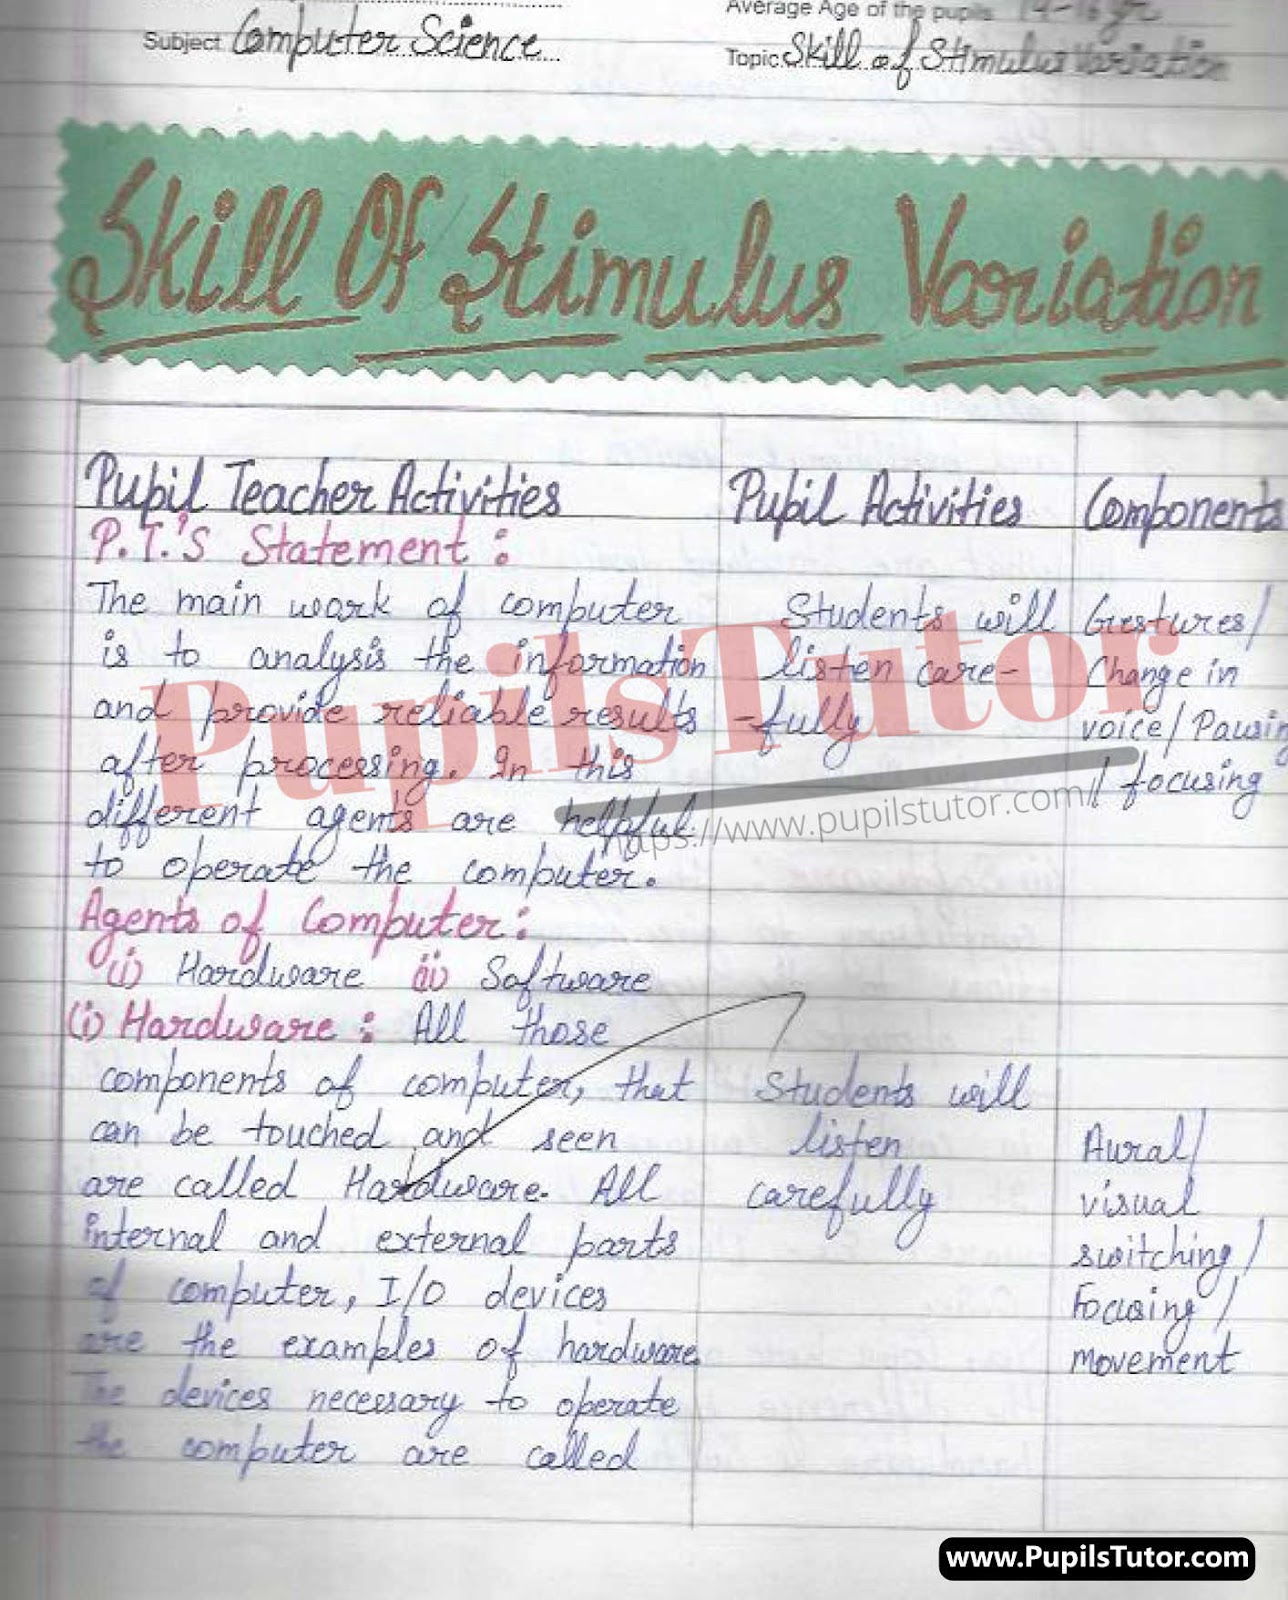 Average Age of the pupils 14-16 yr
Subject Computer Science
Topic Skill of Stimulus Variation
Skill Of Stimulus Variation
Pupil Teacher Activities
P.T.'S Statement :
The main work of computer
is to analysis the information
and provide reliable results
after processing. In this
different agents are helpful
to operate the computer.
Agents of Computer :
(i) Hardware (ii) Software
(i) Hardware : All those
components of computer, that
can be touched and seen
are called Hardware. All
internal and external parts
of computer, I/O devices
are the examples of hardware.
The devices necessary to operate
the computer are called
Pupil Activities
Students will
listen care-
-fully
Students will
listen
carefully
Components
Gestures/
Change in
voice/ Pausing
/ focusing
Aural/
visual
switching/
Focusing/
movement
PupilsTutor
https://www.pupilstutor.com/
www.PupilsTutor.com